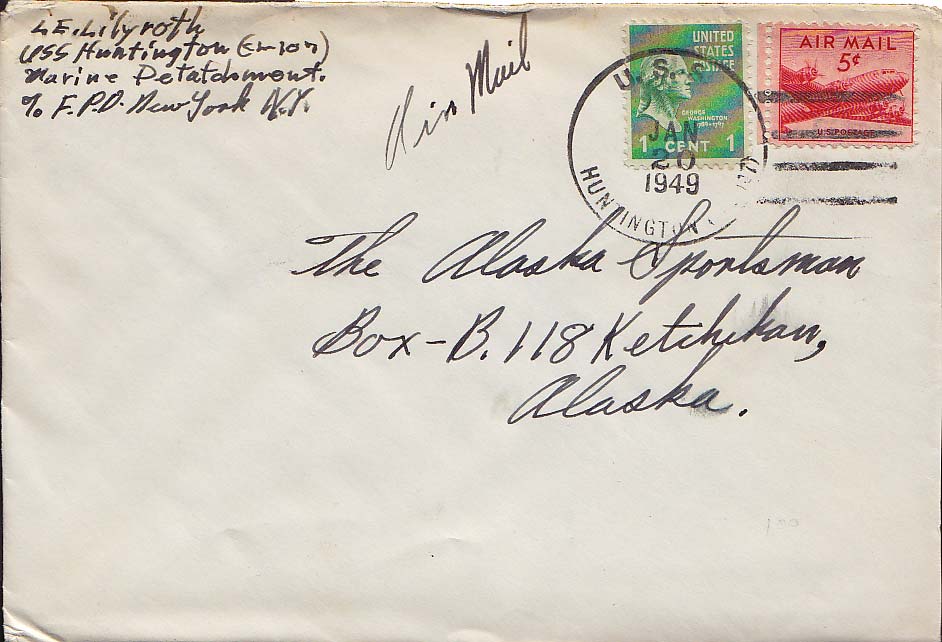 L.E. Lilyroth
USS Huntington (CL-107)
Marine Detatchment.
% F.P.O. New York N.Y.
Air Mail
UNITED
STATES
POSTAGE
GEORGE
WASHINGTON
1789-1797
1 CENT 1
AIR MAIL
5¢
U.S. POSTAGE
U.S.
JAN
20
1949
HUNTINGTON
The Alaska Sportsman
Box-B. 118 Ketchikan,
Alaska.